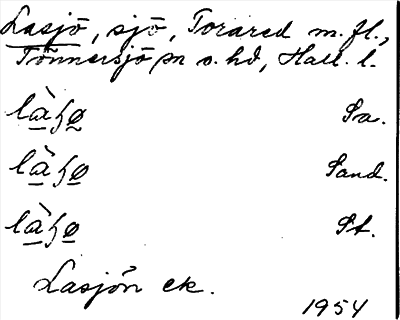 Lasjö, sjö, Torared m. fl.,
Tönnersjö sn o. hd, Hall. l.
là̱ɧø̱ Sa.
là̱ɧø̱ Sand.
là̱ɧø̱ St.
Lasjön ek.
1954